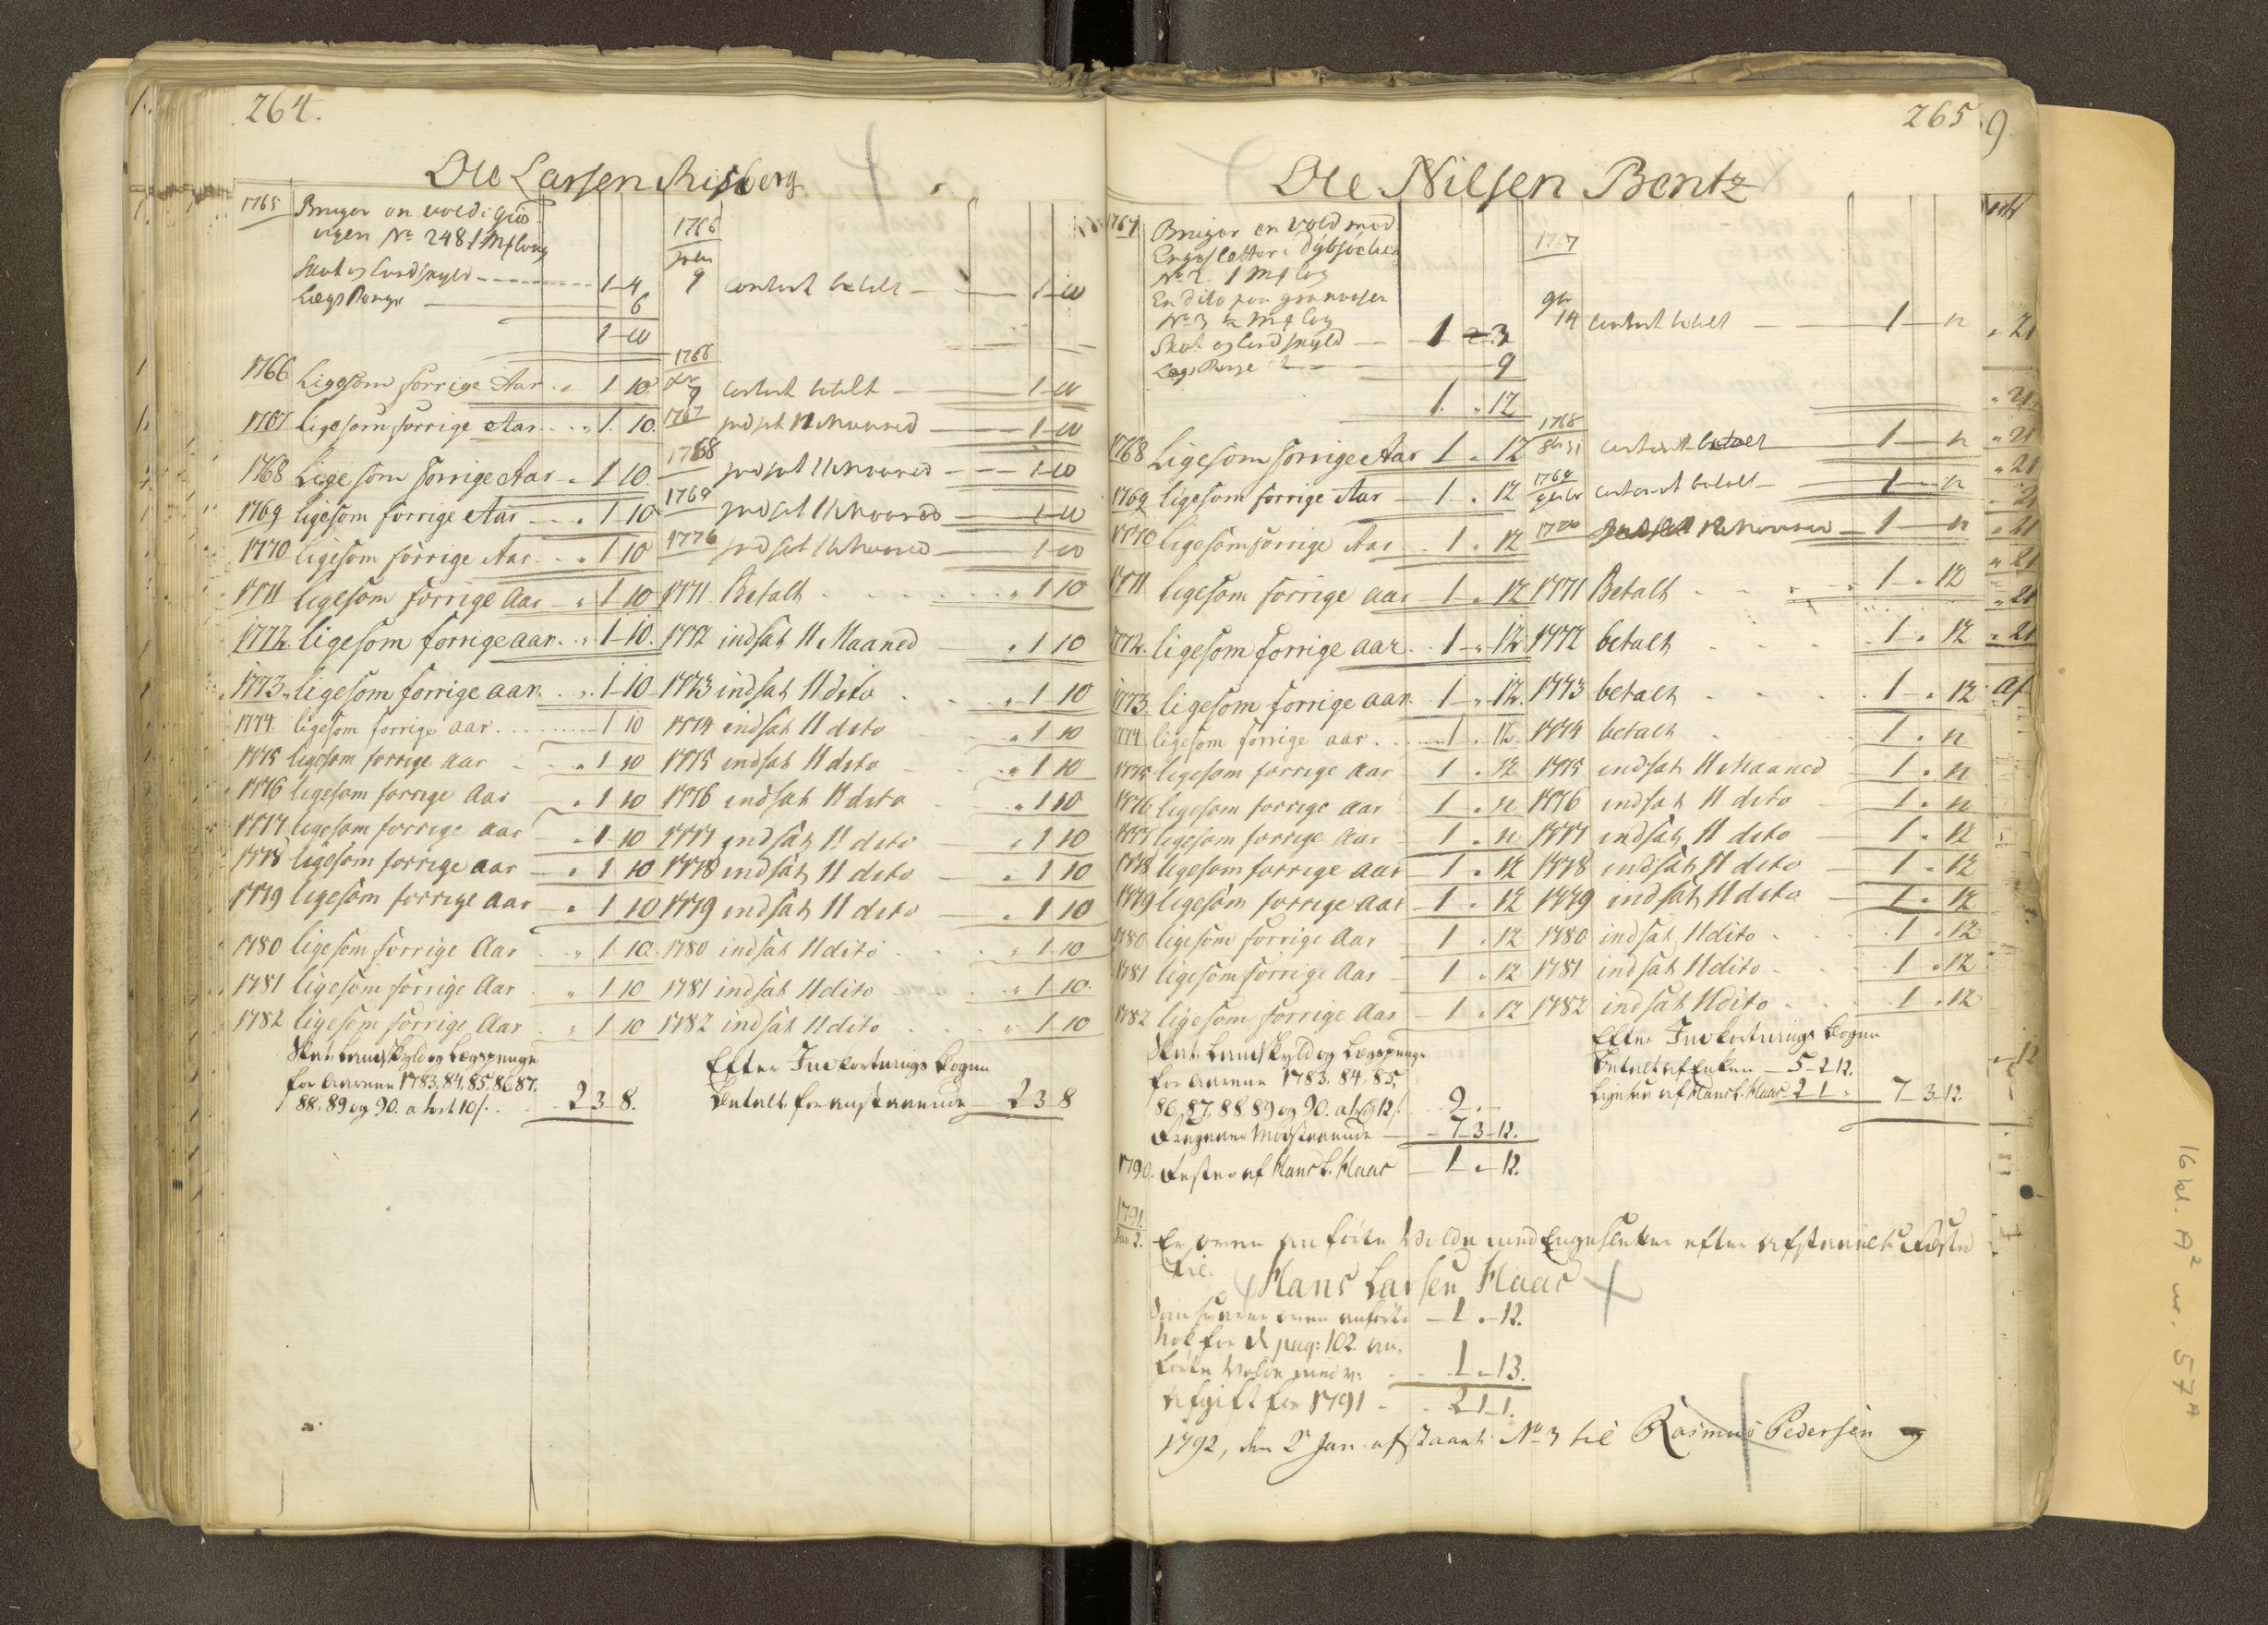 264.
Ole Larsen Risberg
1765 Bruger en vold i Grüs-
vigen No 248 1 Mf lang
Skat og landskyld 1-4
Lægs Penge 6
1-10
1766 Ligesom forrige Aar 1 10
1767 ligesom forrige Aar 1 10
1768 Lige som forrige Aar 1 10
1769 ligesom forrige Aar 1 10
1770 ligesom forrige Aar 1 10
1771 ligesom forrige Aar 1 10
1772 ligesom forrige aar 1-10
1773 ligesom forrige aar 1-10
1774 ligesom forrige aar 1 10
1775 ligesom forrige aar 1 10
1776 ligesom forrige Aar 1 10
1777 ligesom forrige aar 1 10
1778 ligesom forrige aar 1 10
1779 ligesom forrige aar 1 10
1780 ligesom forrige Aar 1 10
1781 ligesom forrige Aar 1 10
1782 ligesom forrige Aar 1 10
Skat, Landskyld og Lægspenge
for Aarene 1783, 84, 85, 86 87,
88, 89 og 90. a 1 ort 10 /. 2 3 8.
1766
9 contant betalt 1-10
1766
9 contant betalt 1-10
1767 indsat 12 Maaned 1-10
1768 indsat 11 Maaned 1-10
1769 indsat 11 Maaned 1-10
1770 indsat 11 Maaned 1-10
1771 Betalt 1 10
1772 indsat 11 Maaned 1 10
1773 indsat 11 dito 1 10
1774 indsat 11 dito 1 10
1775 indsat 11 dito 1 10
1776 indsat 11 dito 1 10
1777 indsat 11 dito 1 10
1778 indsat 11 dito 1 10
1779 indsat 11 dito 1 10
1780 indsat 11 dito 1 10
1781 indsat 11 dito 1 10
1782 indsat 11 dito 1 10
Efter Indkortnings bogen
betalt foranstaaende 2 3 8
265
Ole Nilsen Bentz
1767 Bruger en vold med
Engesletter i Dybsöckel
No 2. 1 Mf lang
En dito paa granaasen
No 3 ½ Mf lang
Skat og landskyld 1 - 3
Lægs Penge 9
1 " 12
1768 Ligesom forrige Aar 1 " 12
1769 ligesom forrige Aar 1 " 12
1770 ligesom forrige Aar 1 " 12
1771 ligesom forrige aar 1 " 12
1772 ligesom forrige aar 1 " 12
1773 ligesom forrige aar 1 " 12
1774 ligesom forrige aar 1 " 12
1775 ligesom forrige aar 1 " 12
1776 ligesom forrige aar 1 " 12
1777 ligesom forrige aar 1 " 12
1778 ligesom forrige aar 1 " 12
1779 ligesom forrige aar 1 " 12
1780 ligesom forrige Aar 1 " 12
1781 ligesom forrige Aar 1 " 12
1782 ligesom forrige Aar 1 " 12
Skat, Landskyld og Lægspenge
for Aarene 1783. 84. 85,
86, 87. 88 89 og 90. 9 "
Modstaaende 7-3-12.
1790. Rester af Hans L. Haas 1 " 12.
1767
14 contant betalt 1 - 12
1768
contant betalt 1 - 12
1769
contant betalt 1 - 12
1770 indsat 12 Maaned 1 - 12
1771 Betalt 1 " 12
1772 betalt 1 " 12
1773 betalt 1 " 12
1774 betalt 1 " 12
1775 indsat 11 Maaned 1 " 12
1776 indsat 11 dito 1 " 12
1777 indsat 11 dito 1 " 12
1778 indsat 11 dito 1 " 12
1779 indsat 11 dito 1 " 12
1780 indsat 11 dito 1 " 12
1781 indsat 11 dito 1 " 12
1782 indsat 11 dito 1 " 12
Efter Indkortnings bogen
betalt af Enken 5-2-12.
af Hans L. Haas 2 1 " 7-3-12.
1791.
Jan 2. Er oven anförte Volde med Engesletter efter Afstaaelse fæstet
til
Hans Larsen Haas
som svarer oven anförte 1 " 12.
Nok for de pag: 102 an-
förte Volde med 1 " 13.
Afgift for 1791 2-1-1.
1792, den 2 Jan. afstaaet No 3 til Rasmus Pedersen
16 kl. A2 nr. 57A